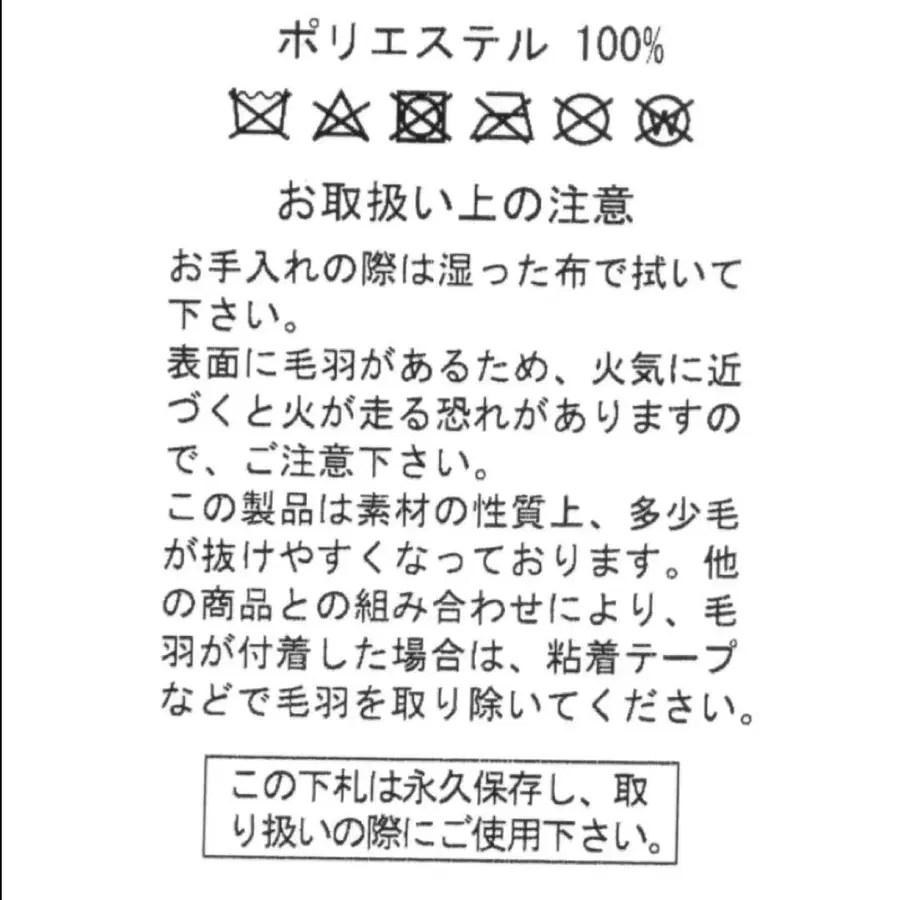 ポリエステル 100%
W
お取扱い上の注意
お手入れの際は湿った布で拭いて
下さい。
表面に毛羽があるため、火気に近
づくと火が走る恐れがありますの
で、ご注意下さい。
この製品は素材の性質上、多少毛
が抜けやすくなっております。他
の商品との組み合わせにより、毛
羽が付着した場合は、粘着テープ
などで毛羽を取り除いてください。
この下札は永久保存し、取
り扱いの際にご使用下さい。